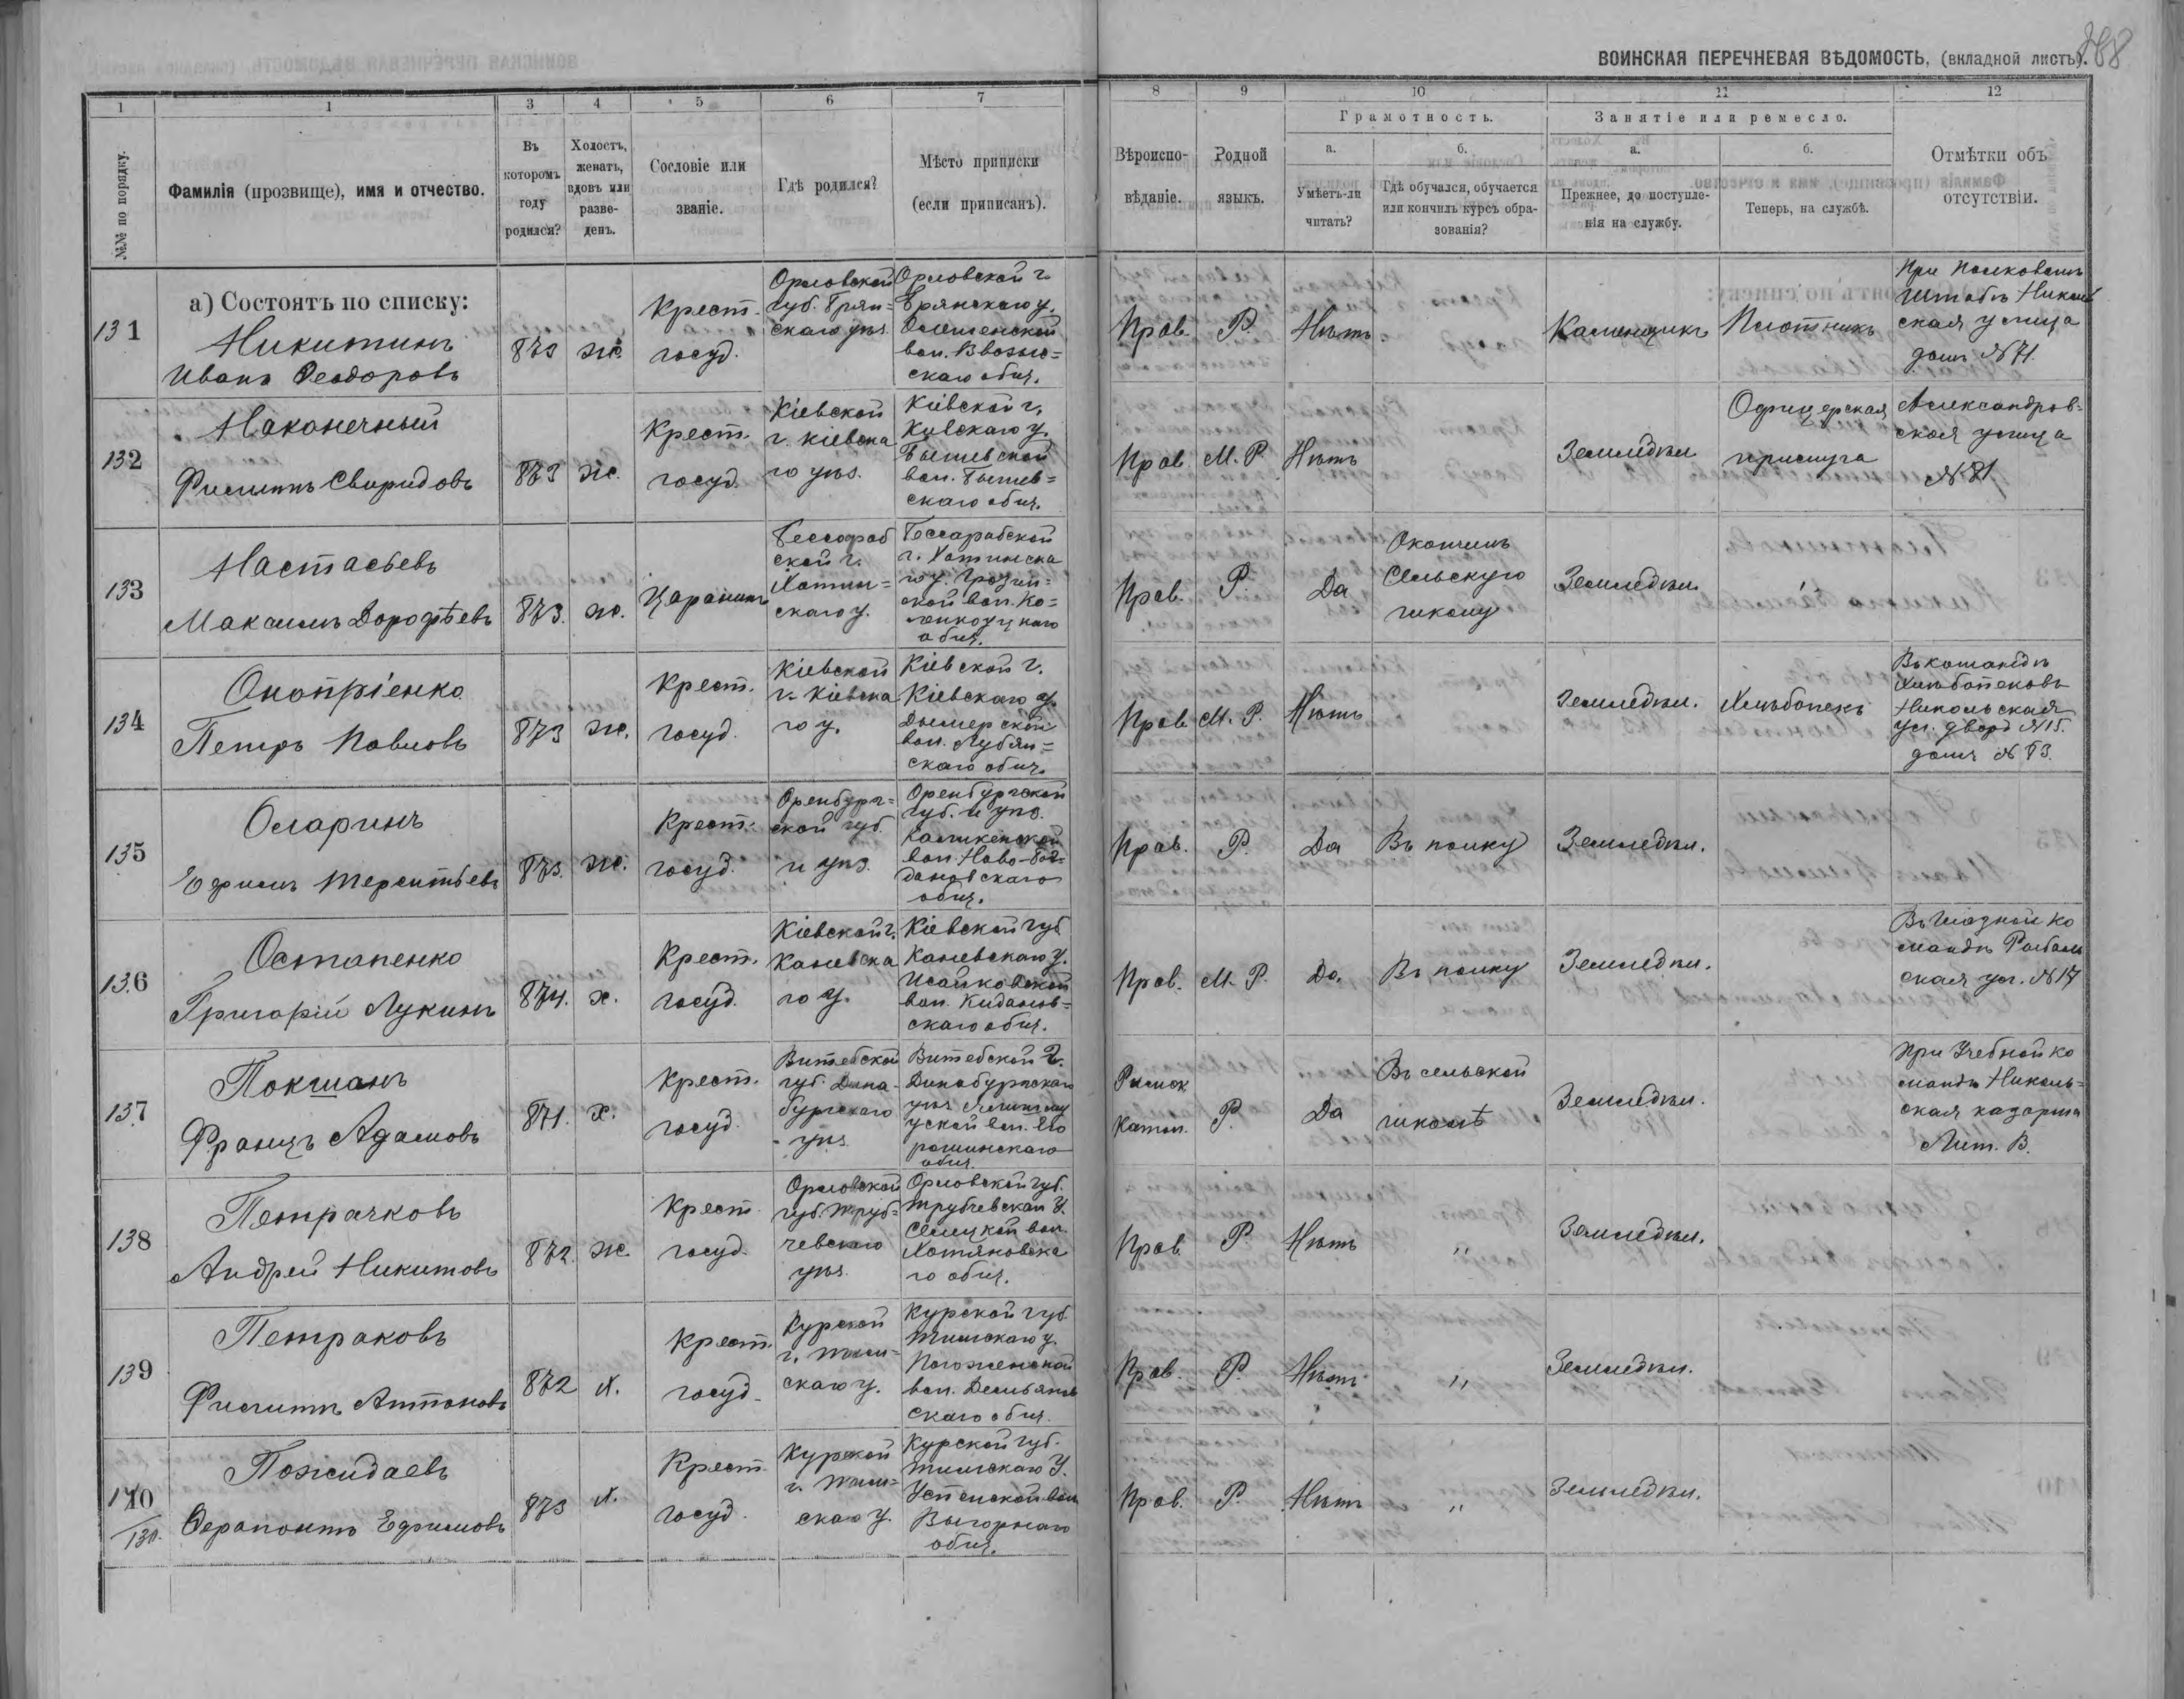 ВОИНСКАЯ ПЕРЕЧНЕВАЯ ВѢДОМОСТЬ, (вкладной листъ).
1 1 3 4 5 6 7 8 9 10 11 12
№№ по порядку.
Фамилія (прозвище), имя и отчество.
Въ которомъ году родился?
Холостъ, женатъ, вдовъ или разве-денъ.
Сословіе или званіе.
Гдѣ родился?
Мѣсто приписки (если приписанъ).
Вѣроиспо-вѣданіе.
Родной языкъ.
Грамотность.
а. Умѣетъ-ли читать?
б. Гдѣ обучался, обучается или кончилъ курсъ обра-зованія?
Занятіе или ремесло.
а. Прежнее, до поступле-нія на службу.
б. Теперь, на службѣ.
Отмѣтки объ отсутствіи.
а) Состоятъ по списку:
131 Никитинъ Иванъ Ѳеодоровъ
873 ж.
Крест. госуд.
Орловской губ. Брян=скаго уѣз.
Орловской г. Брянскаго у. вол. скаго общ.
Прав. Р. Нѣтъ
Каменщикъ Плотникъ
При Полковомъ Штабѣ Николь ская улица домъ №71.
132 Наконечный Филиппъ Свиридовъ
873 ж.
Крест. госуд.
Кіевской г. Кіевска го уѣз.
Кіевской г. Кіевскаго у. Бышевской вол. Бышев=скаго общ.
Прав М. Р. Нѣтъ
Земледѣл. Офицерская прислуга
Александров-ская улица №81
133 Настасьевъ Максимъ Дорофѣевъ
873. ж.
Царанинъ
Бессараб ской г. Хотин=скаго у.
Бессарабской г. Хотинска го у. вол. общ.
Прав. Р. Да
Окончилъ Сельскую школу
Земледѣл.
134 Онопріенко Петръ Павловъ
873 ж.
Крест. госуд.
Кіевской г. Кіевска го у.
Кіевской г. Кіевскаго у. Дымерской вол. Лубян=скаго общ.
Прав. М. Р. Нѣтъ
Земледѣл. Хлѣбопекъ
Въ командѣ Хлѣбопековъ Никольская ул. дворъ №15. домъ №
135 Оларинъ Ефимъ Терентьевъ
873. ж.
Крест. госуд.
Оренбург=ской губ. и уѣз.
Оренбургской губ. и уѣз. вол. Ново-Бог=дановскаго общ.
Прав. Р. Да Въ полку Земледѣл.
136 Остапенко Григорій Лукинъ
874. х.
Крест. госуд.
Кіевской г. Каневска го у.
Кіевской губ Каневскаго у. Исайковской вол. Киданов=скаго общ.
Прав. М. Р. Да. Въ полку Земледѣл.
ко мандѣ ская ул. №17
137 Покшанъ Францъ Адамовъ
871. х.
Крест. госуд.
Витебской губ. Дина-бургскаго уѣз.
Витебской г. Динабургскаго уѣз. вол. общ.
Римск Катол. Р. Да
Въ сельской школѣ
Земледѣл.
При Учебной ко мандѣ Николь=ская казарма Лит. В.
138 Петрачковъ Андрей Никитовъ
872. ж.
Крест. госуд.
Орловской губ. Труб=чевскаго уѣз.
Орловской губ. Трубчевскаго у. Селецкой вол. Хотяновска го общ.
Прав. Р. Нѣтъ " Земледѣл.
139 Петраковъ Филиппъ Антоновъ
872 х.
Крест. госуд.
Курской г. Тим=скаго у.
Курской губ. Тимскаго у. вол. скаго общ.
Прав. Р. Нѣтъ " Земледѣл.
140 Пожидаевъ Ѳерапонтъ Ефимовъ
130.
873 х.
Крест. госуд.
Курской г. Тим=скаго у.
Курской губ. Тимскаго у. Успенской вол Выгорнаго общ.
Прав. Р. Нѣтъ " Земледѣл.